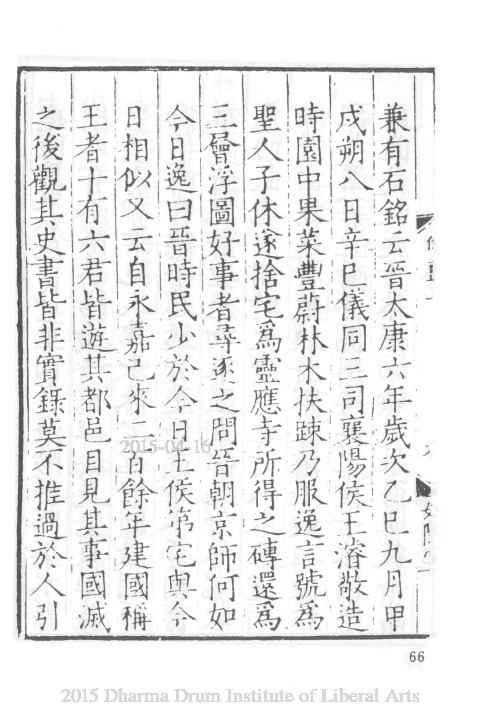 兼有石銘云晉太康六年歲次乙巳九月甲
戌朔八日辛巳儀同三司襄陽侯王濬敬造
時園中果菜豐蔚林木扶踈乃服逸言號為
聖人子休遂捨宅爲靈應寺所得之磚還爲
三層浮圖好事者尋逐之問晉朝京師何如
今日逸曰晉時民少於今日王侯第宅與今
日相似又云自永嘉已來二百餘年建國稱
王者十有六君皆遊其都邑目見其事國滅
之後觀其史書皆非實錄莫不推過於人引
2015-04-16
66
2015 Dharma Drum Institute of Liberal Arts